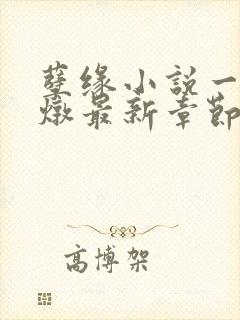 孽缘小説一
燉最新章節
高博架